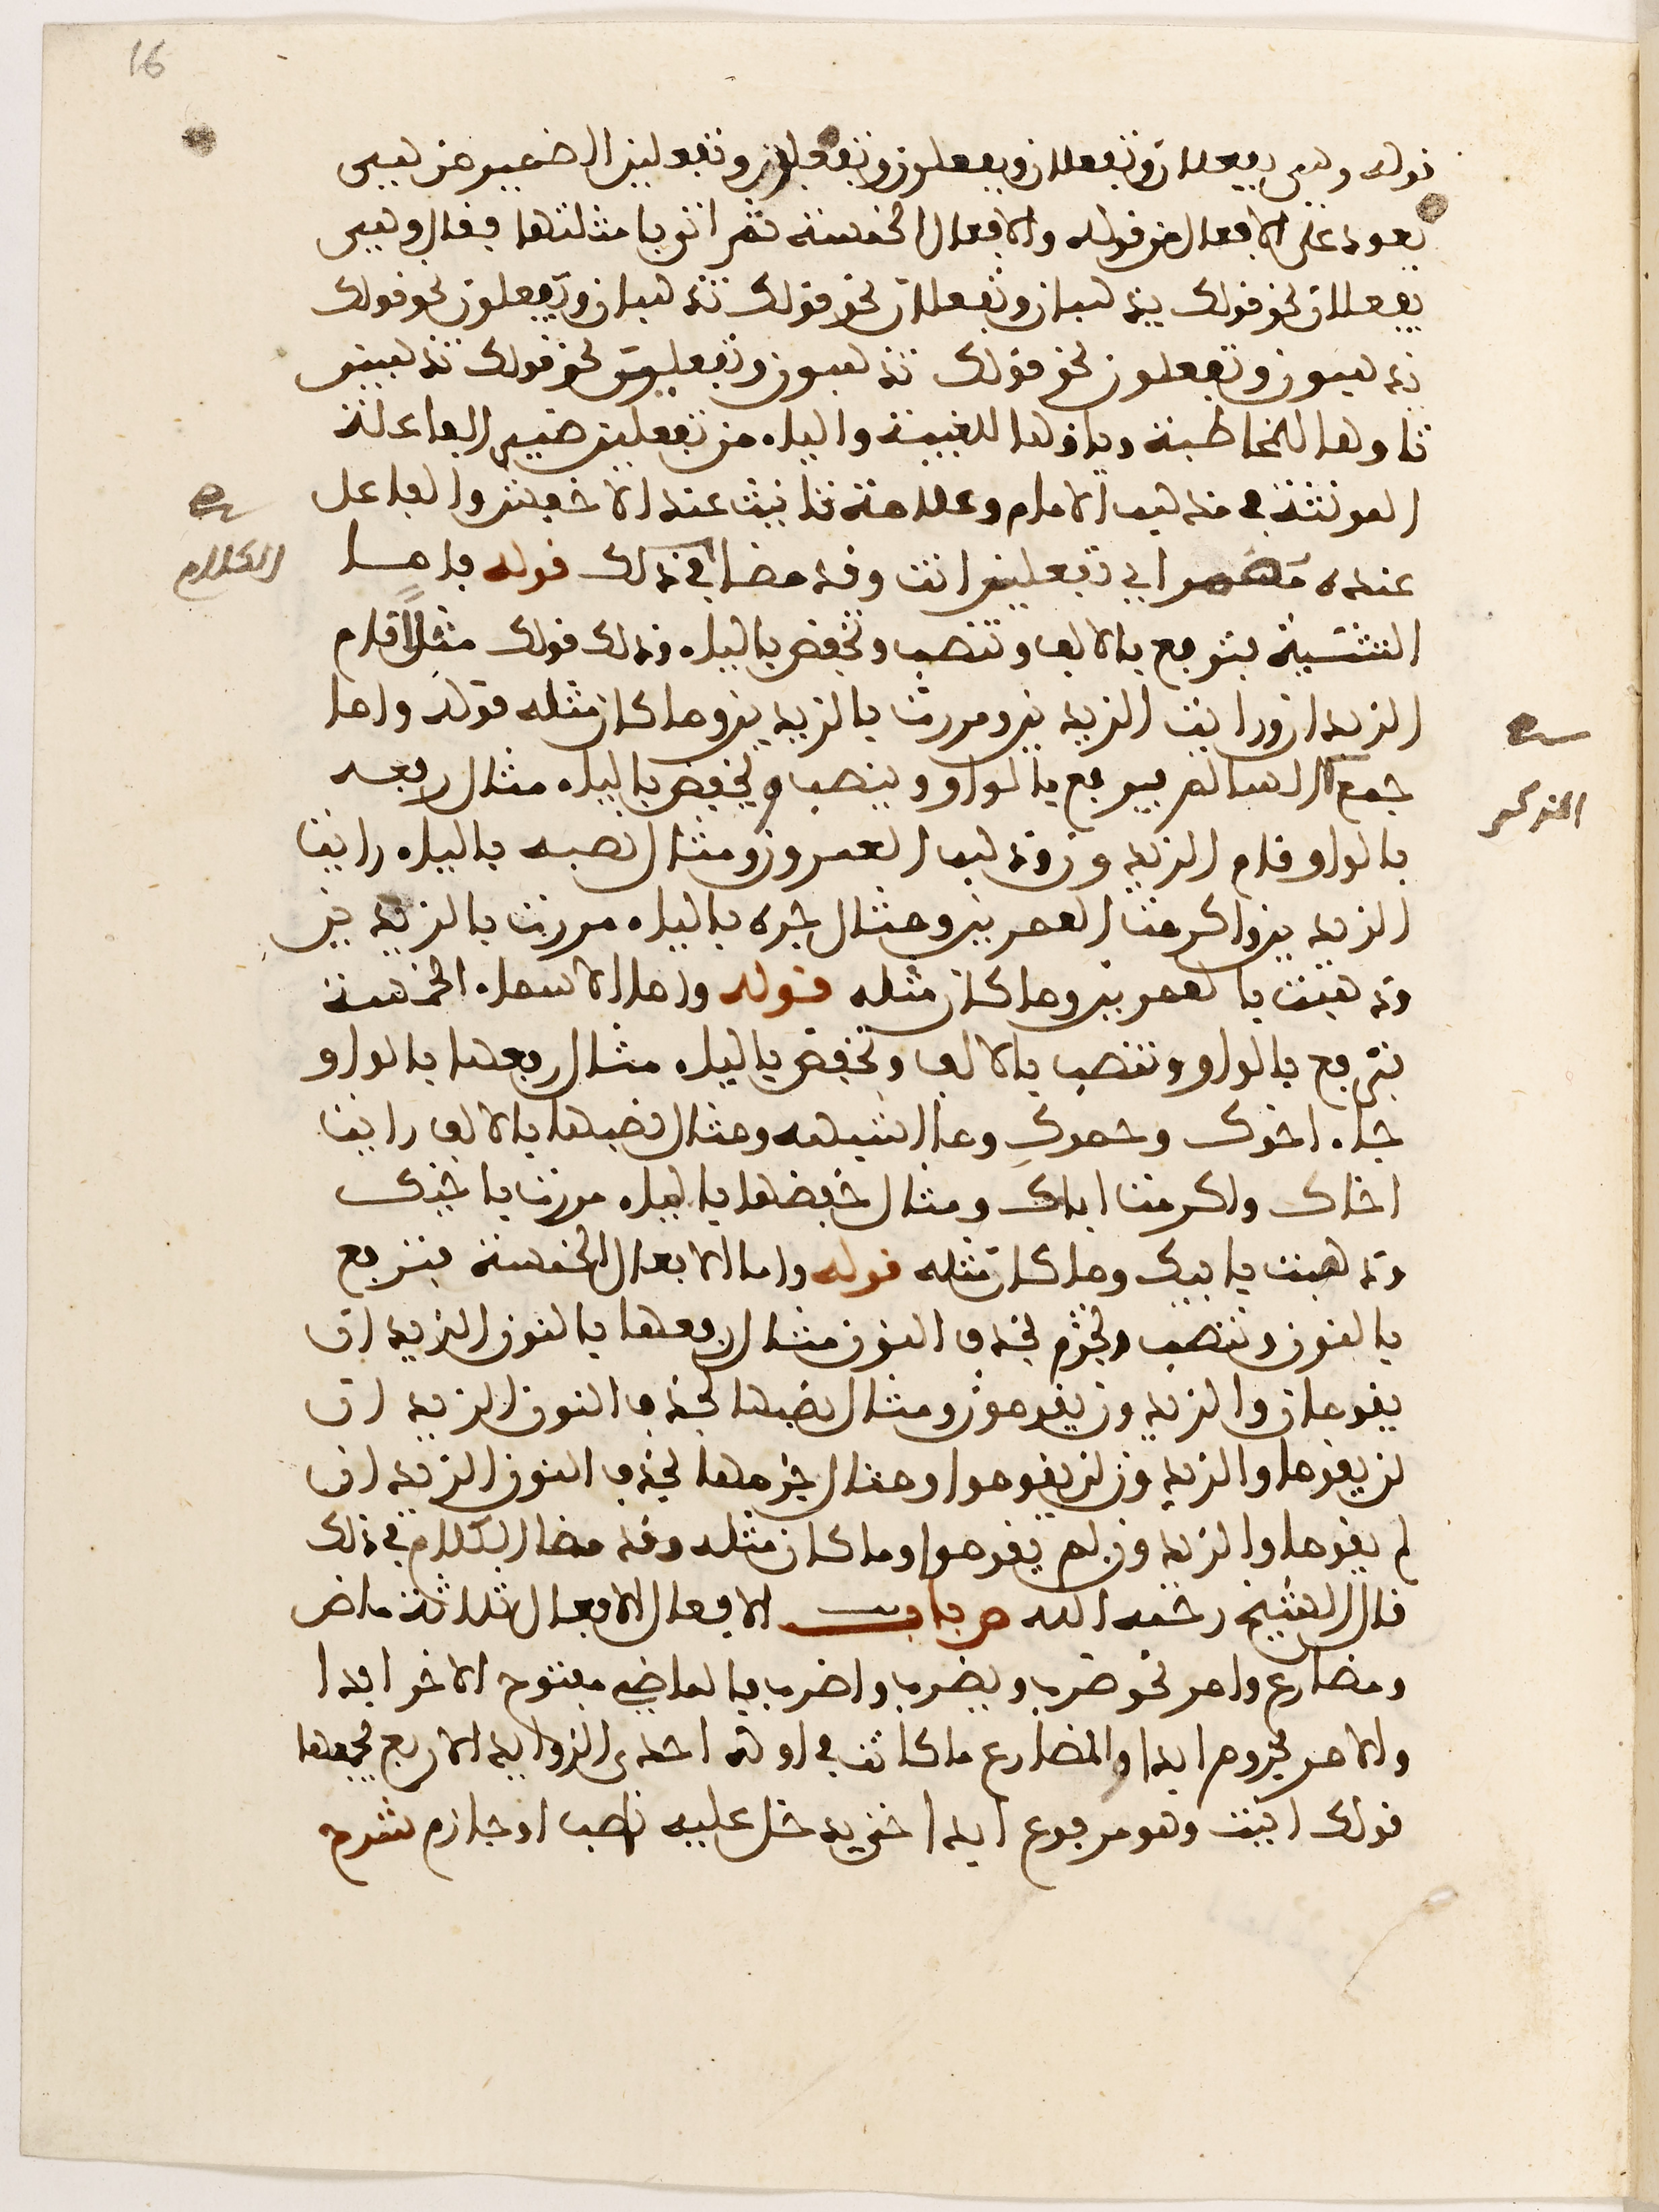 16
قوله وهي يفعلان وتفعلان ويفعلون وتفعلون وتفعلين الضمير من هي
يعود على الافعال من قوله والافعال الخمسة ثم اتى بامثلتها فقال وهي
يفعلان نحو قولك يذهبان وتفعلان نحو قولك تذهبان ويفعلون نحو قولك
يذهبون وتفعلون نحو قولك تذهبون وتفعلين نحو قولك تذهبين
تاوها للمخاطبة وياوها للغيبة والياء من تفعلين ضمير الفاعلة
المونثة في مذهب الامام وعلامة تانيث عند الاخفش والفاعل
عنده مضمر اي تفعلين انت وقد مضا في ذلك قوله فاما
الكلام
التثنية فترفع بالالف وتنصب وتخفض بالياء وذلك قولك مثلا قام
الزيدان ورايت الزيدين ومررت بالزيدين وما كان مثله قوله واما
جمع السالم فيرفع بالواو وينصب ويخفض بالياء مثال رفعه
المذكر
بالواو قام الزيدون وذهب العمرون ومثال نصبه بالياء رايت
الزيدين واكرمت العمرين ومثال جره بالياء مررت بالزيدين
وذهبت بالعمرين وما كان مثله قوله واما الاسماء الخمسة
فترفع بالواو وتنصب بالالف وتخفض بالياء مثال رفعها بالواو
جاء اخوك وحموك وما اشبهه ومثال نصبها بالالف رايت
اخاك واكرمت اباك ومثال خفضها بالياء مررت باخيك
وذهبت بابيك وما كان مثله قوله واما الافعال الخمسة فترفع
بالنون وتنصب وتجزم بحذف النون مثال رفعها بالنون الزيدان
يقومان والزيدون يقومون ومثال نصبها بحذف النون الزيدان
لن يقوما والزيدون لن يقوموا ومثال جزمها بحذف النون الزيدان
لم يقوما والزيدون لم يقوموا وما كان مثله وقد مضا الكلام في ذلك
قال الشيخ رحمه الله ص باب الافعال الافعال ثلاثة ماض
ومضارع وامر نحو ضرب ويضرب واضرب فالماضي مفتوح الاخر ابدا
والامر مجزوم ابدا والمضارع ما كانت في اوله احدى الزوايد الاربع يجمعها
قولك انيت وهو مرفوع ابدا حتى يدخل عليه ناصب او جازم شرح